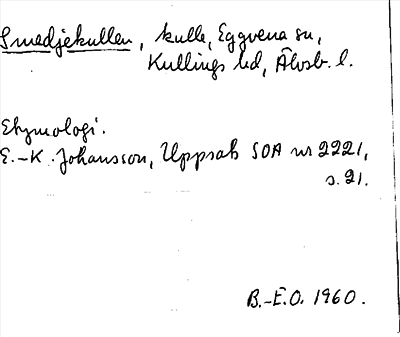 Smedjekullen, kulle, Eggvena sn,
Kullings hd, Älvsb. l.
Etymologi.
E.-K. Johansson, Uppsats SOA nr 2221,
s. 21.
B.-E.O. 1960.